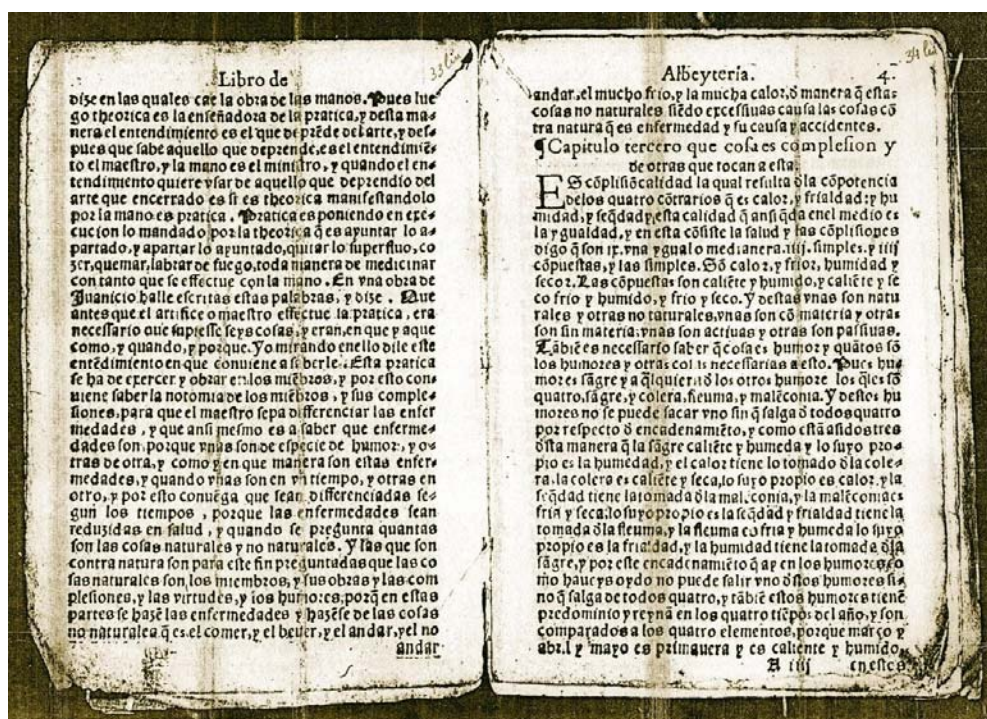 Libro de
dize en las quales cae la obra de las manos. Pues lue
go theorica es la enseñadora de la pratica, y desta ma=
nera el entendimiento es el que deprẽde del arte, y des=
pues que sabe aquello que deprende, es el entendimiẽ=
to el maestro, y la mano es el ministro, y quando el en=
tendimiento quiere vsar de aquello que deprendio del
arte que encerrado es si es theorica manifestandolo
por la mano es pratica. Pratica es poniendo en exe=
cucion lo mandado por la theorica q̃ es ayuntar lo a=
partado, y apartar lo ayuntado, quitar lo superfluo, co
zer, quemar, labrar de fuego, toda manera de medicinar
con tanto que se effectue con la mano. En vna obra de
Juanicio halle escritas estas palabras, y dize. Que
antes que el artifice o maestro effectue la pratica, era
necessario que supiesse seys cosas, y eran, en que y a que
como, y quando, y porque. Yo mirando en ello dile este
entẽdimiento en que conuiene a saberle. Esta pratica
se ha de exercer y obrar en los miẽbros, y por esto con
uiene saber la notomia de los miẽbros, y sus comple=
siones, para que el maestro sepa differenciar las enfer
medades, y que ansi mesmo es a saber que enferme=
dades son, porque vnas son de especie de humor, y o=
tras de otra, y como y en que manera son estas enfer=
medades, y quando vnas son en vn tiempo, y otras en
otro, y por esto conuẽga que sean differenciadas se=
gun los tiempos, porque las enfermedades sean
reduzidas en salud, y quando se pregunta quantas
son las cosas naturales y no naturales. Y las que son
contra natura son para este fin preguntadas que las co
sas naturales son, los miembros, y sus obras y las com
plesiones, y las virtudes, y los humores, porq̃ en estas
partes se hazẽ las enfermedades y hazẽse de las cosas
no naturales q̃ es, el comer, y el beuer, y el andar, y el no
andar
33 lin
Albeyteria. 4.
34 lin
andar, el mucho frio, y la mucha calor, õ manera q̃ estas
cosas no naturales siẽdo excessiuas causa las cosas cõ
tra natura q̃ es enfermedad y su causa y accidentes.
¶Capitulo tercero que cosa es complesion y
de otras que tocan a esta.
ES cõplisiõ calidad la qual resulta õla cõpotencia
õelos quatro cõtrarios q̃ es calor, y frialdad: y hu
midad, y seq̃dad, y esta calidad q̃ ansi q̃da en el medio es
la ygualdad, y en esta cõsiste la salud y las cõplisiones
digo q̃ son ix. vna ygual o medianera. iiij. simples. y iiij
cõpuestas, y las simples. Sõ calor, y frior, humidad y
secor. Las cõpuestas son caliẽte y humido, y caliẽte y se
co frio y humido, y frio y seco. Y destas vnas son natu
rales y otras no naturales, vnas son cõ materia y otras
son sin materia, vnas son actiuas y otras son passiuas.
Tãbiẽ es necessario saber q̃ cosa es humor y quãtos sõ
los humores y otras cosas necessarias a esto. Pues hu
mor es sãgre y a q̃lquier õ los otros humores los q̃les sõ
quatro, sãgre, y colera, fleuma, y malẽconia. Y destos hu
mores no se puede sacar vno sin q̃ salga õ todos quatro
por respecto õ encadenamiẽto, y como estã asidos tres
õsta manera q̃ la sãgre caliẽte y humeda y lo suyo pro=
pio es la humedad, y el calor tiene lo tomado õla cole=
ra, la colera es caliẽte y seca, lo suyo propio es calor, y la
seq̃dad tiene la tomada õla malẽconia, y la malẽconia es
fria y seca, lo suyo propio es la seq̃dad y frialdad tiene la
tomada õla fleuma, y la fleuma es fria y humeda lo suyo
propio es la frialdad, y la humidad tiene la tomada õla
sãgre, y por este encadenamiẽto q̃ ay en los humores co
mo haueys oydo no puede salir vno õstos humores si=
no q̃ salga de todos quatro, y tãbiẽ estos humores tienẽ
predominio y reynã en los quatro tiẽpos del año, y son
comparados a los quatro elementos, porque março y
abril y mayo es primauera y es caliente y humido,
A iiij en estos